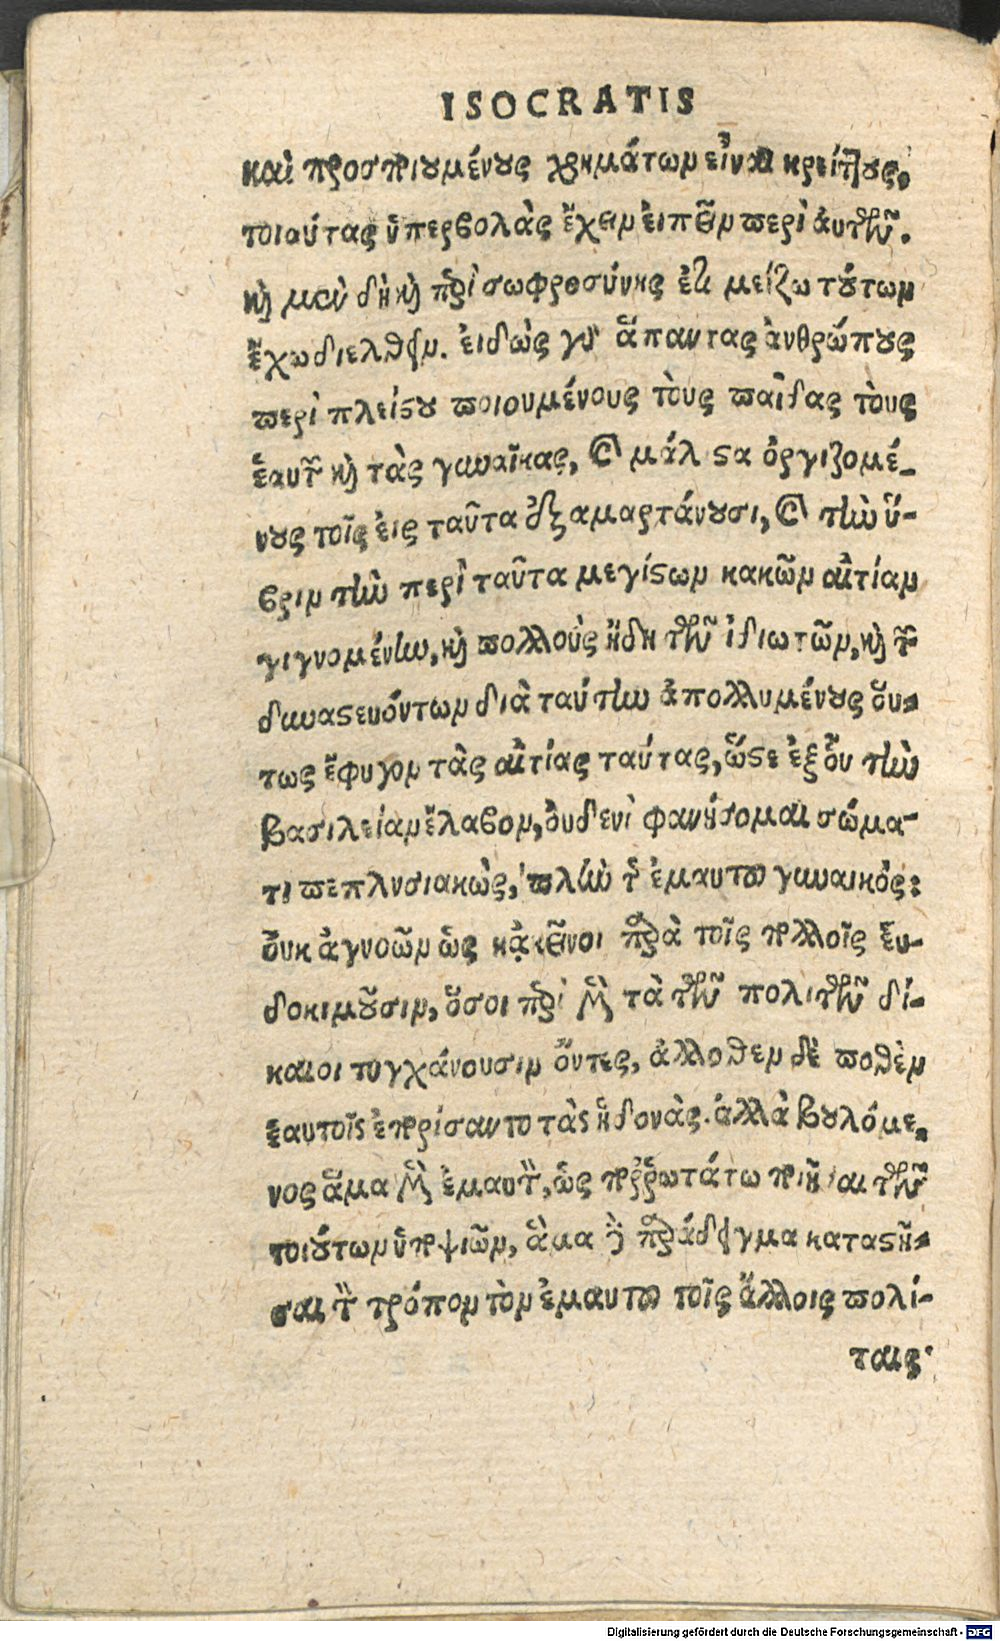 ISOCRATIS
καὶ προσποιουμένους χρημάτων εἶναι κρείττους,
τοιαύτας ὑπερβολὰς ἔχειν εἰπεῖν περὶ αὐτῶν.
καὶ μὲν δὴ καὶ περὶ σωφροσύνης ἔτι μείζω τούτων
ἔχω διελθεῖν. εἰδὼς γὰρ ἅπαντας ἀνθρώπους
περὶ πλείστου ποιουμένους τοὺς παῖδας τοὺς
ἑαυτῶν καὶ τὰς γυναῖκας, καὶ μάλιστα ὀργιζομέ-
νους τοῖς εἰς ταῦτα ἐξαμαρτάνουσι, καὶ τὴν ὕ-
βριν τὴν περὶ ταῦτα μεγίστων κακῶν αἰτίαν
γιγνομένην, καὶ πολλοὺς ἤδη τῶν ἰδιωτῶν, καὶ τῶν
δυναστευόντων διὰ ταύτην ἀπολλυμένους οὕ-
τως ἔφυγον τὰς αἰτίας ταύτας, ὥστε ἐξ οὗ τὴν
βασιλείαν ἔλαβον, οὐδενὶ φανήσομαι σώμα-
τι πεπλησιακὼς, πλὴν τῆς ἐμαυτοῦ γυναικός:
οὐκ ἀγνοῶν ὡς κἀκεῖνοι παρὰ τοῖς πολλοῖς εὐ-
δοκιμοῦσιν, ὅσοι περὶ μὲν τὰ τῶν πολιτῶν δί-
καιοι τυγχάνουσιν ὄντες, ἄλλοθεν δέ ποθεν
ἑαυτοῖς ἐπορίσαντο τὰς ἡδονὰς. ἀλλὰ βουλόμε-
νος ἅμα μὲν ἐμαυτὸν, ὡς πορρωτάτω ποιῆσαι τῶν
τοιούτων ὑποψιῶν, ἅμα δὲ παράδειγμα καταστῆ-
σαι τὸν τρόπον τὸν ἐμαυτοῦ τοῖς ἄλλοις πολί-
ταις·
Digitalisierung gefördert durch die Deutsche Forschungsgemeinschaft - DFG